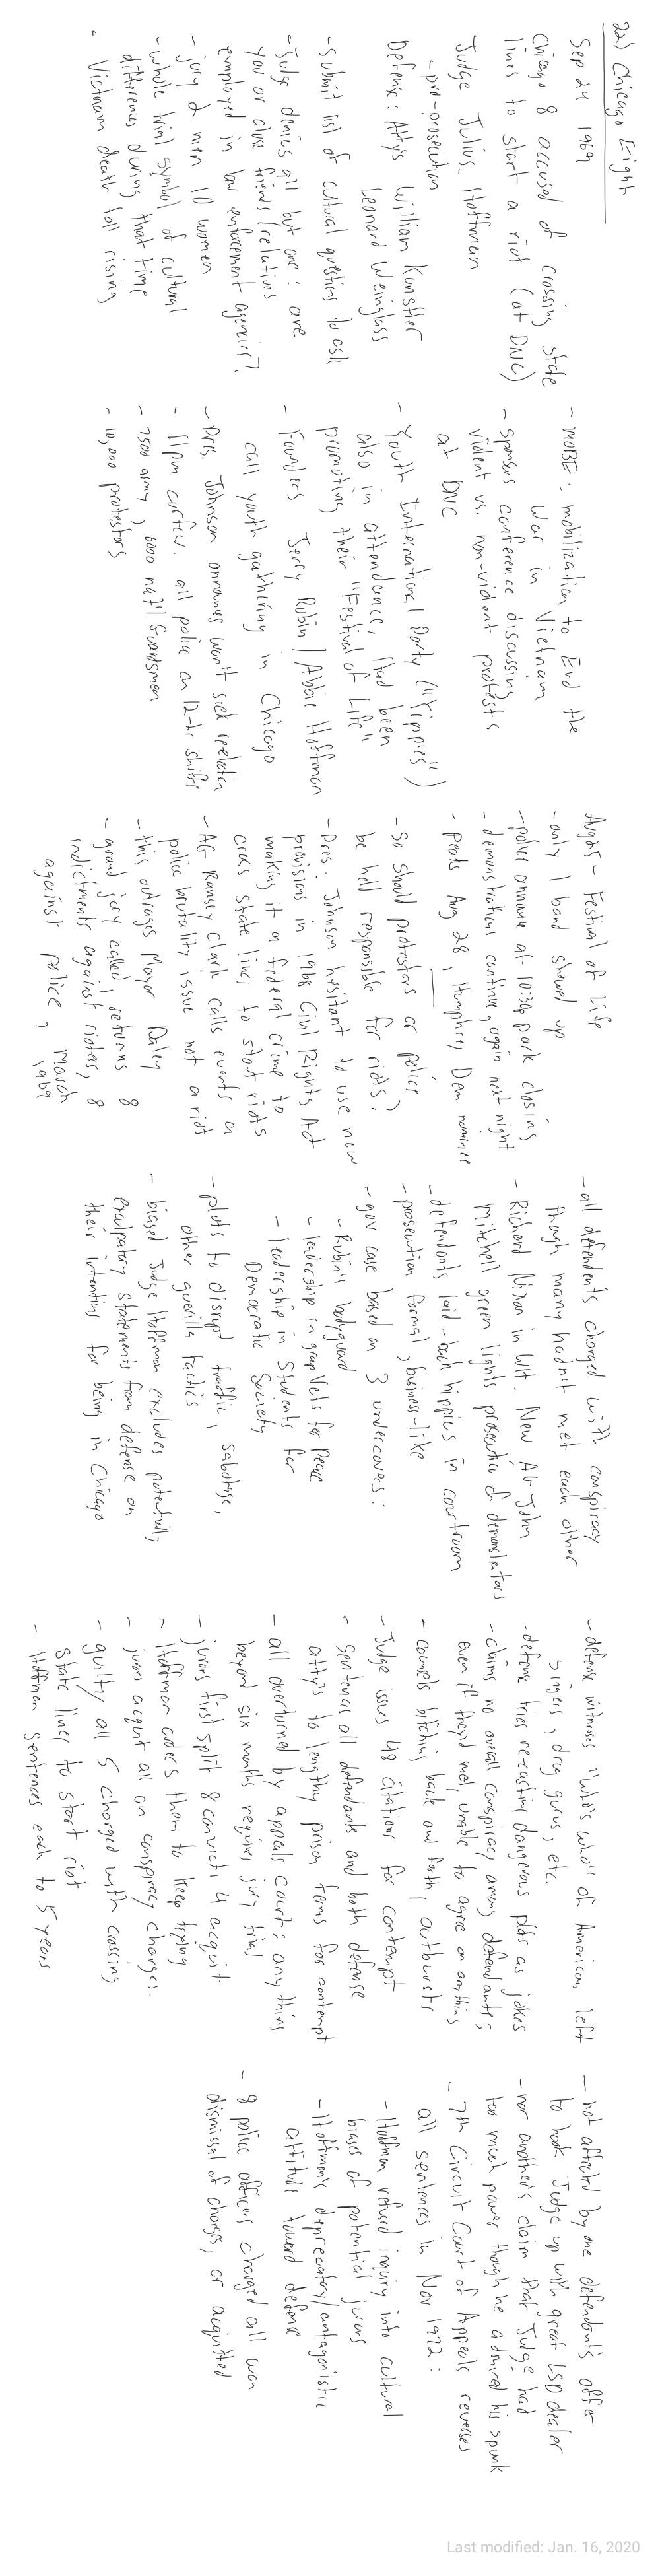 22) Chicago Eight
Sep 24 1969
Chicago 8 accused of crossing state
lines to start a riot (at DNC)
Judge Julius Hoffman
- pro-prosecution
Defense: Atty's William Kunstler
Leonard Weinglass
- submit list of cultural questions to ask
- Judge denies all but one: are
you or close friends/relatives
employed in law enforcement agencies?
- jury 2 men 10 women
- whole trial symbol of cultural
differences during that time
- Vietnam death toll rising
- MOBE: mobilization to End the
War in Vietnam
- sponsers conference discussing
violent vs. non-violent protests
at DNC
- Youth International Party ("Yippies")
also in attendance, Had been
promoting their "Festival of Life"
- Founders Jerry Rubin / Abbie Hoffman
call youth gathering in Chicago
- Pres. Johnson announces won't seek re-election
- 11pm curfew. all police on 12-hr shifts
- 7500 army, 6000 nat'l Guardsmen
- 10,000 protestors
Aug 25 - Festival of Life
- only 1 band showed up
- police announce at 10:30p park closing
- demonstrations continue, again next night
- peaks Aug 28, Humphrey Dem nominee
- So should protestors or police
be held responsible for riots?
- Pres. Johnson hesitant to use new
provisions in 1968 Civil Rights Act
making it a federal crime to
cross state lines to start riots
- AG Ramsey Clark calls events a
police brutality issue not a riot
- this outrages Mayor Daley
- grand jury called, returns 8
indictments against rioters, 8
against police, March
1969
- all defendents charged with conspiracy
though many hadn't met each other
- Richard Nixon in WH. New AG John
Mitchell green lights prosecution of demonstrators
- defendants laid-back hippies in courtroom
- prosecution formal, business-like
- gov case based on 3 undercovers:
- Rubin's bodyguard
- leadership in group Vets for Peace
- leadership in Students for
Democratic Society
- plots to disrupt traffic, sabotage,
other guerilla tactics
- biased Judge Hoffman excludes potentially
exculpatory statements from defense on
their intentions for being in Chicago
- defense witnesses "who's who" of American left
singers, drug gurus, etc.
- defense tries re-casting dangerous plots as jokes
- claims no overall conspiracy among defendants;
even if they'd met, unable to agree on anything
- counsels bitching back and forth, outbursts
- Judge issues 48 citations for contempt
- sentences all defendants and both defense
atty's to lengthy prison terms for contempt
- all overturned by appeals court; anything
beyond six months requires jury trial
- jurors first split 8 convict 4 acquit
- Hoffman orders them to keep trying
- jurors acquit all on conspiracy charges.
- guilty all 5 charged with crossing
state lines to start riot
- Hoffman sentences each to 5 years
- not affected by one defendant's offer
to hook Judge up with great LSD dealer
- nor another's claim that Judge had
too much power though he admired his spunk
- 7th Circuit Court of Appeals reverses
all sentences in Nov 1972:
- Hoffman refused inquiry into cultural
biases of potential jurors
- Hoffman's deprecatory/antagonistic
attitude toward defense
- 8 police officers charged all won
dismissal of charges, or acquitted
Last modified: Jan. 16, 2020